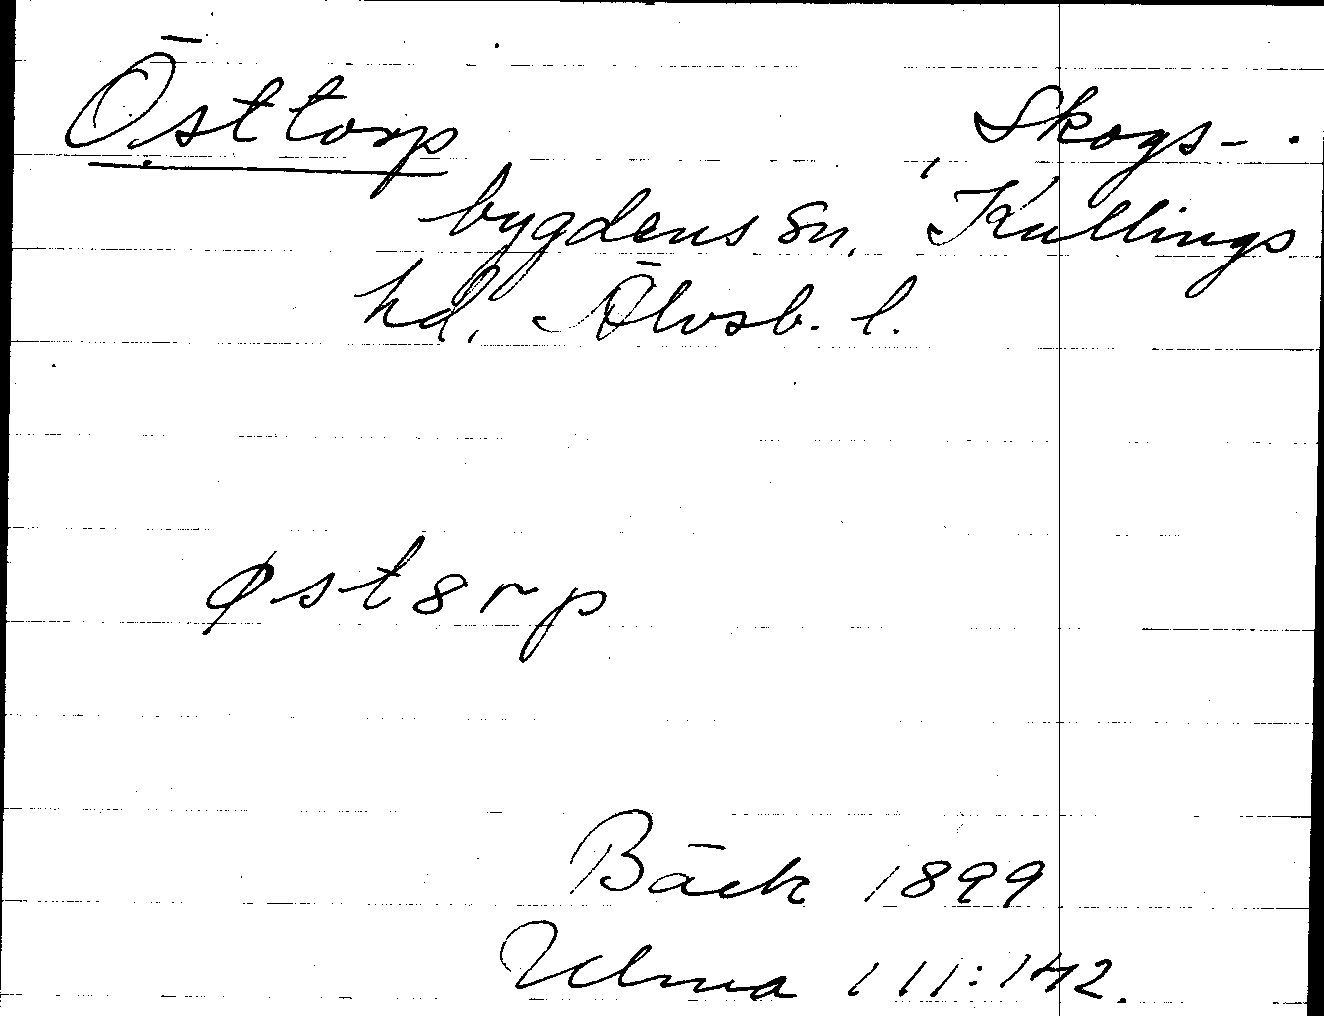 Östtorp Skogs-
bygdens sn, Kullings
hd, Älvsb. l.
øst8rp
Bäck 1899
Ulma 111:142.